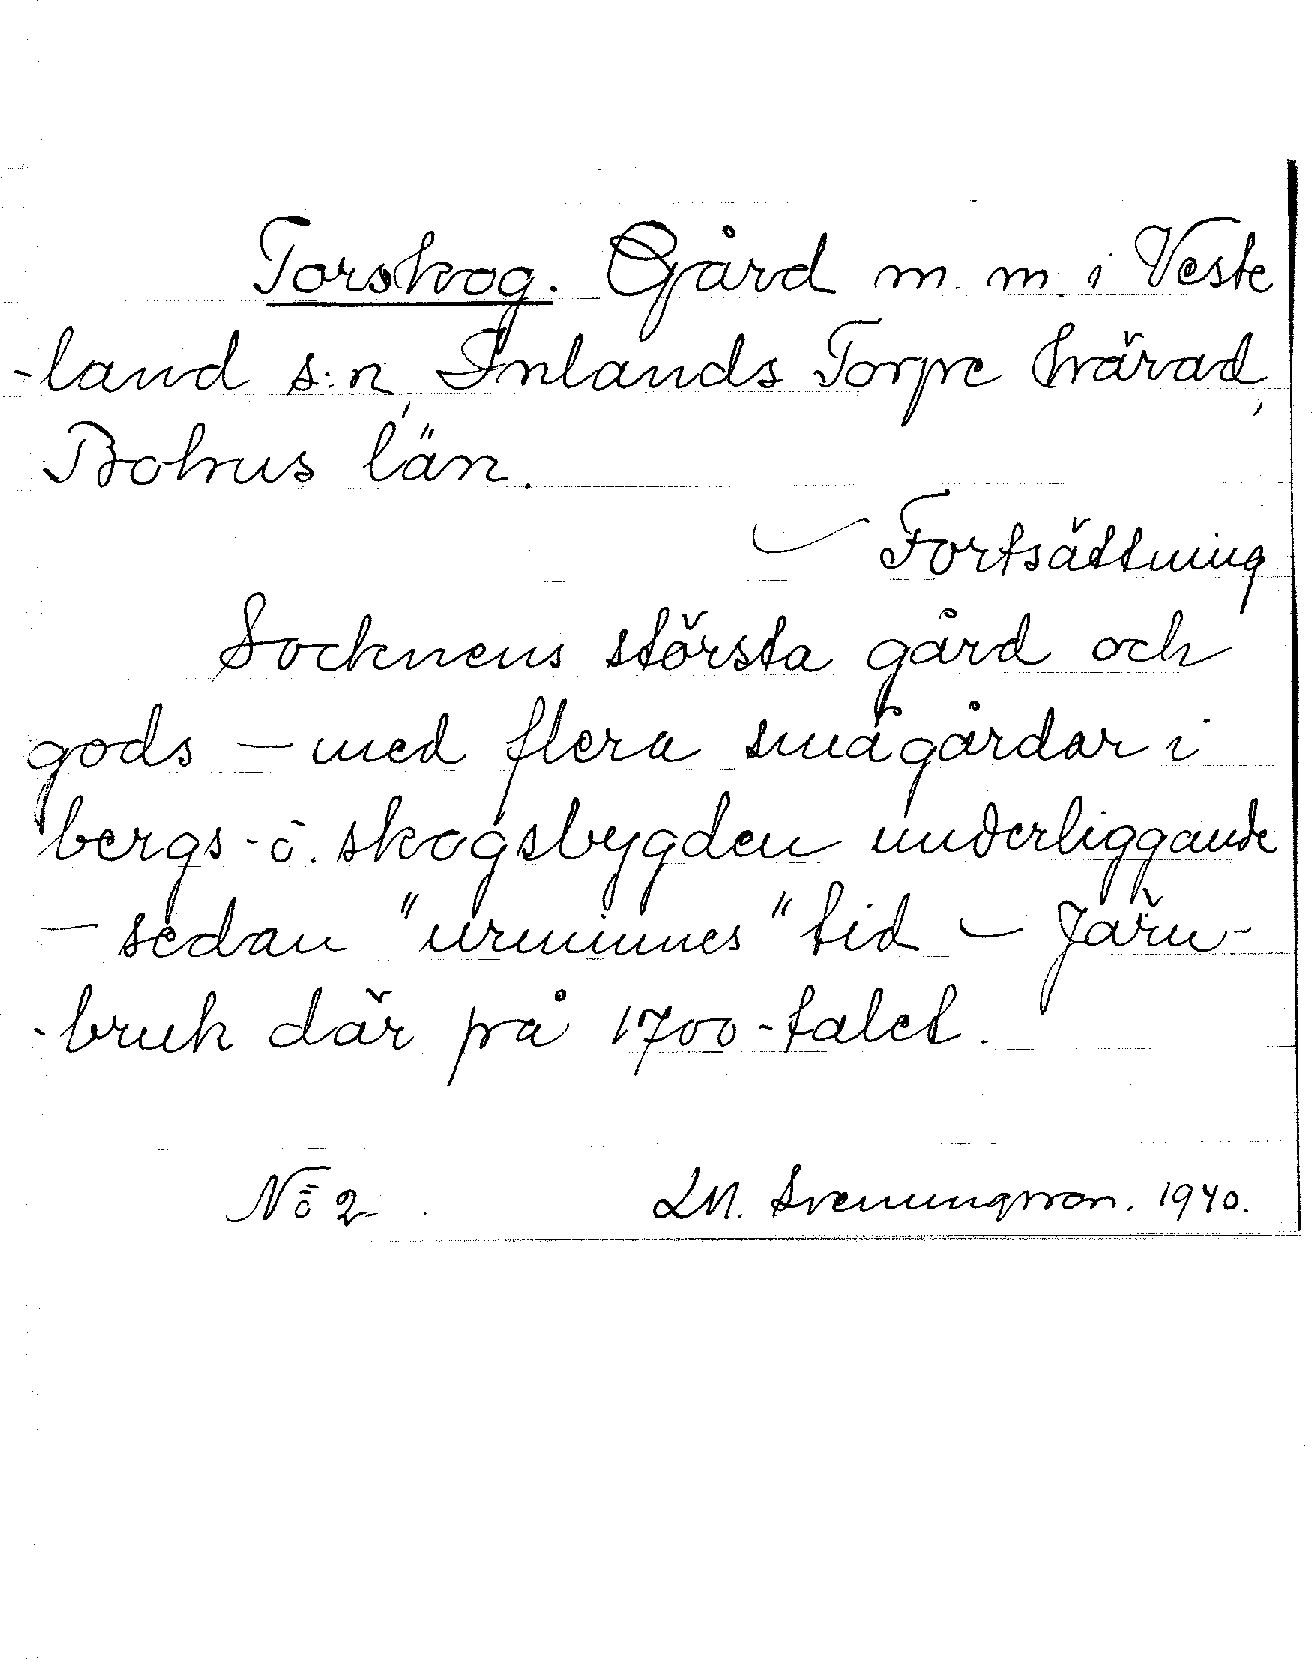 Torskog. Gård m. m. i Veste
-land s:n, Inlands Torpe härad,
Bohus län.
— Fortsättning
Socknens största gård och
gods — med flera smågårdar i
bergs- o. skogsbygden underliggande
— sedan "urminnes" tid — Järn-
-bruk där på 1700-talet.
No 2 LM. Svenungsson. 1940.